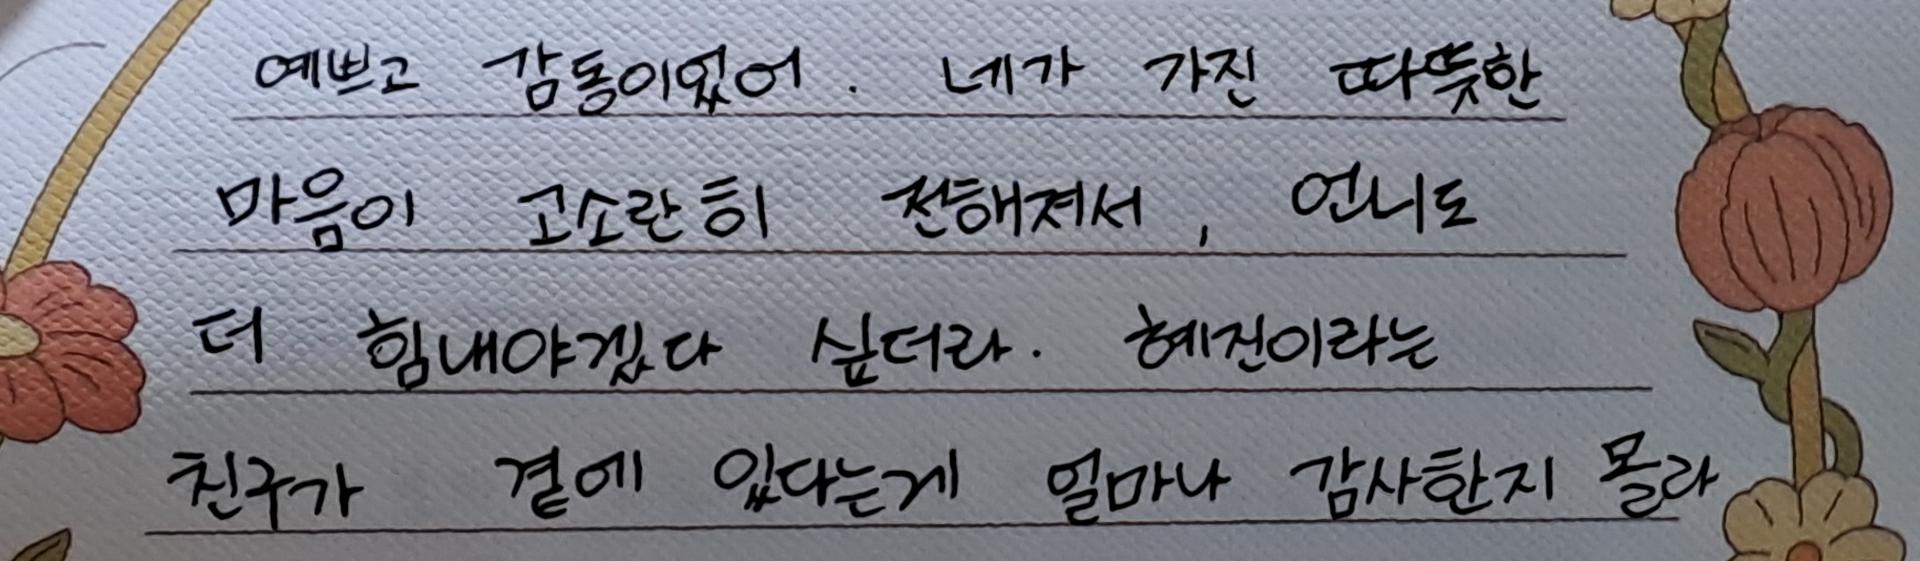 예쁘고 감동이었어. 네가 가진 따뜻한
마음이 고소란히 전해져서, 언니도
더 힘내야겠다 싶더라. 혜진이라는
친구가 곁에 있다는게 얼마나 감사한지 몰라